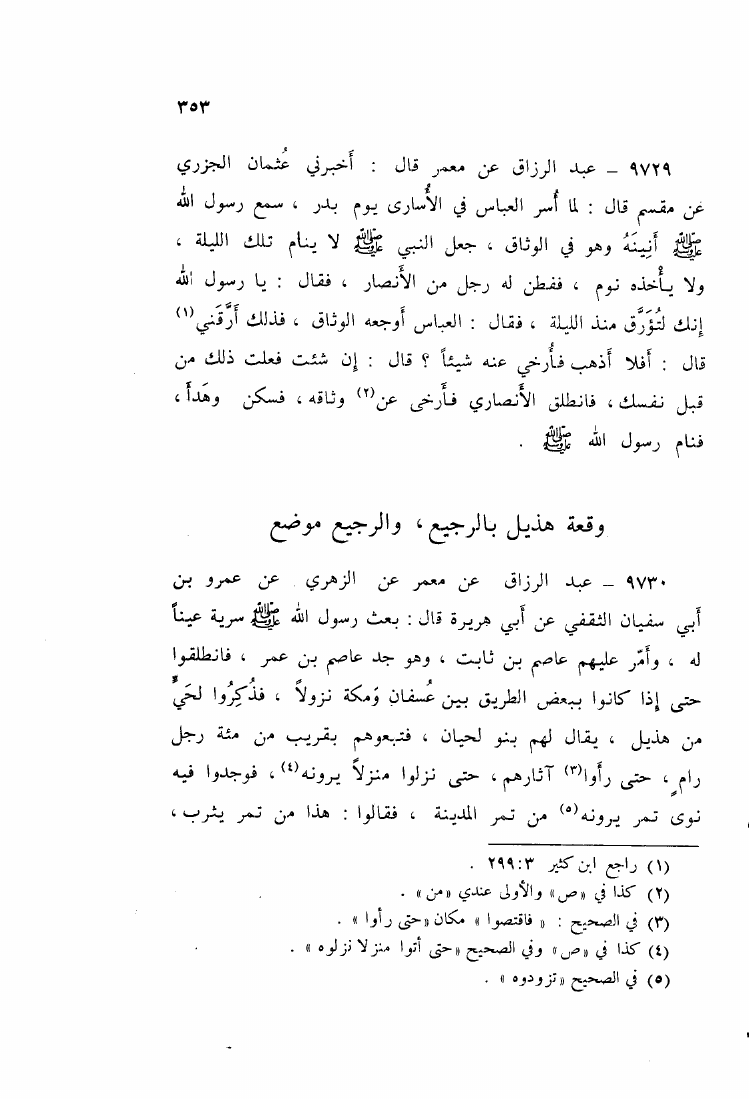 ٣٥٣
٩٧٢٩ – عبد الرزاق عن معمر قال : أخبرني عُثمان الجزري
عن مقسم قال : لما أُسر العباس في الأُسارى يوم بدر ، سمع رسول الله
ﷺ أَنِينَهُ وهو في الوثاق ، جعل النبي ﷺ لا ينام تلك الليلة ،
ولا يأْخذه نوم ، ففطن له رجل من الأَنصار ، فقال : يا رسول الله
إنك لَتُؤَرَّق منذ الليلة ، فقال : العباس أَوجعه الوثاق ، فذلك أَرَّقَني(١)
قال : أَفلا أَذهب فأُرخي عنه شيئاً ؟ قال : إن شئت فعلت ذلك من
قبل نفسك ، فانطلق الأَنصاري فأَرخى عن(٢) وثاقه ، فسكن وهَدأَ ،
فنام رسول الله ﷺ .
وقعة هذيل بالرجيع ، والرجيع موضع
٩٧٣٠ – عبد الرزاق عن معمر عن الزهري عن عمرو بن
أَبي سفيان الثقفي عن أَبي هريرة قال : بعث رسول الله ﷺ سرية عيناً
له ، وأَمّر عليهم عاصم بن ثابت ، وهو جد عاصم بن عمر ، فانطلقوا
حتى إذا كانوا ببعض الطريق بين عُسفانِ وَمكة نزولاً ، فذُكِرُوا لحَيٍّ
من هذيل ، يقال لهم بنو لحيان ، فتبعوهم بقريب من مئة رجل
رامٍ ، حتى رأَوا(٣) آثارهم ، حتى نزلوا منزلاً يرونه(٤) ، فوجدوا فيه
نوى تمر يرونه(٥) من تمر المدينة ، فقالوا : هذا من تمر يثرب ،
(١) راجع ابن كثير ٢٩٩:٣ .
(٢) كذا في «ص» والأولى عندي «من» .
(٣) في الصحيح : «فاقتصوا» مكان «حتى رأوا» .
(٤) كذا في «ص» وفي الصحيح «حتى أتوا منزلا نزلوه» .
(٥) في الصحيح «تزودوه» .